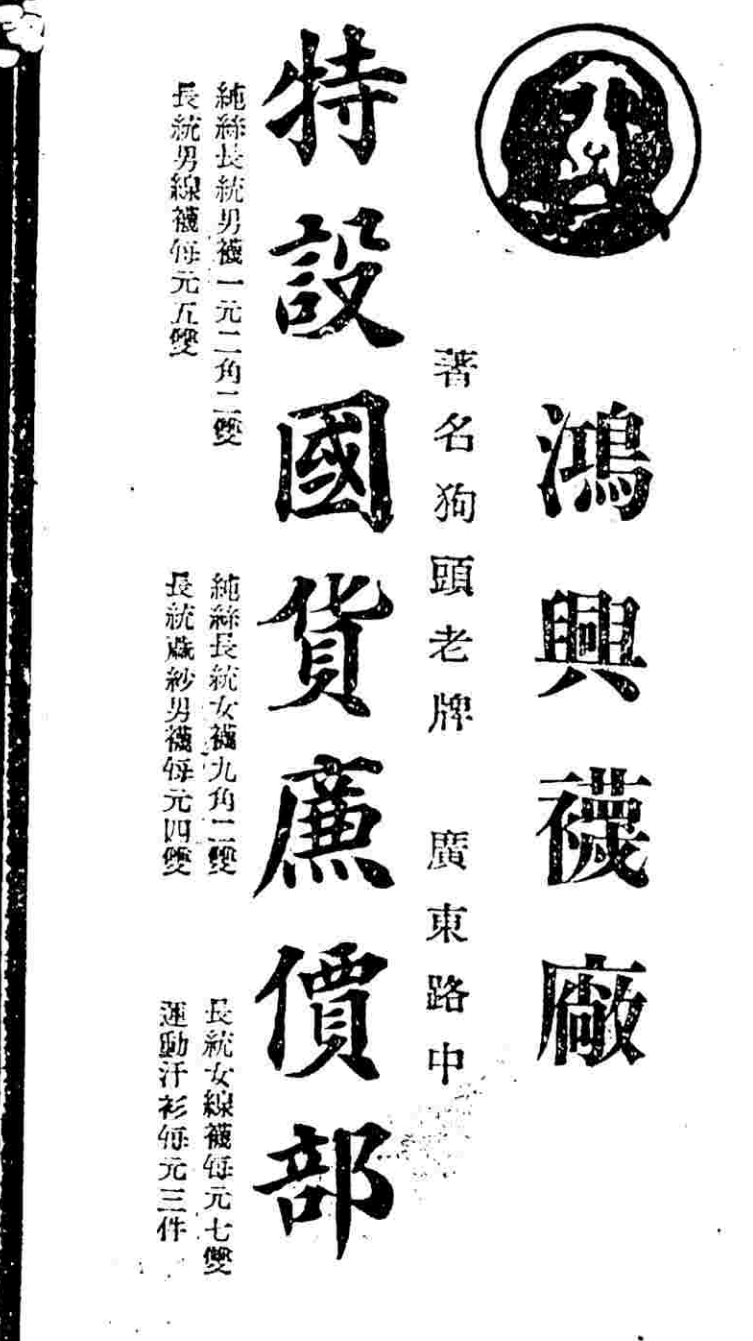 鴻興襪廠
著名狗頭老牌 廣東路中
特設國貨廉價部
純絲長統男襪一元二角二雙
長統男線襪每元五雙
純絲長統女襪九角二雙
長統蔴紗男襪每元四雙
長統女線襪每元七雙
運動汗衫每元三件